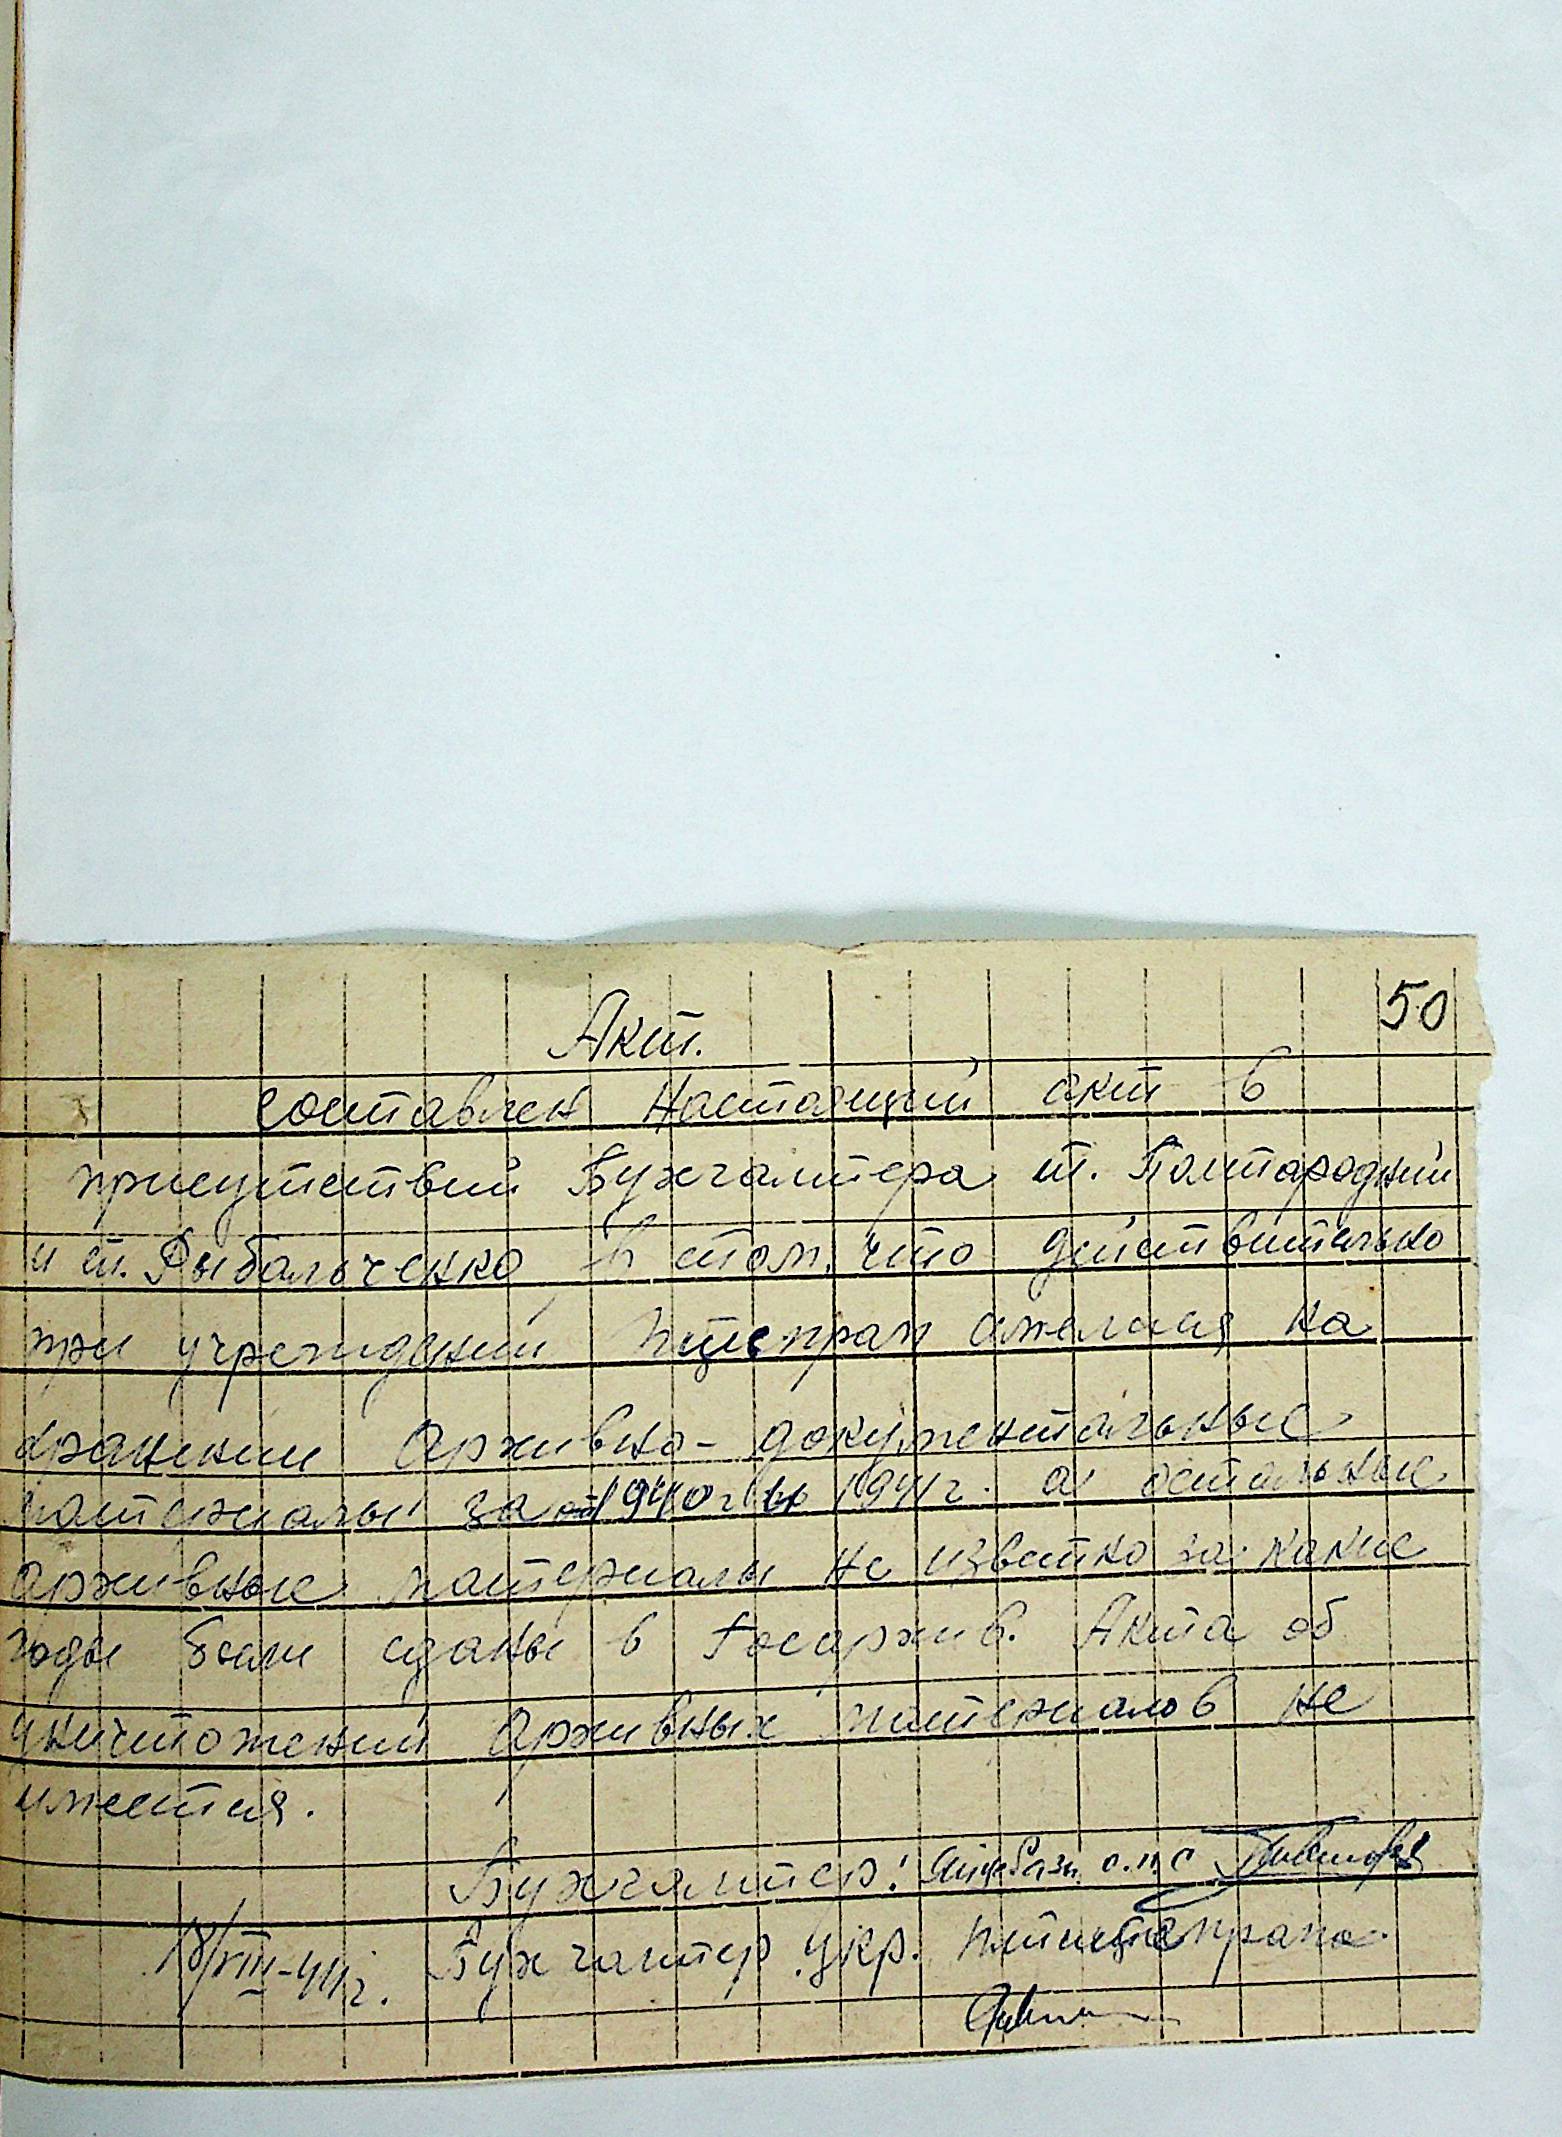 50
Акт.
составлен настоящий акт в
присутствий Бухгалтера т. Полтородний
и т. Рыбальченко в том, что действительно
при учреждений имелися на
хранении архивно-документальные
материалы за 1940 г и 1941 г. а остальные
архивные материалы не известно за какие
годы были сданы в Госархив. Акта об
уничтожений архивных материалов не
имеется.
Бухгалтер:
18/VIII-44г. Бухгалтер Укр.